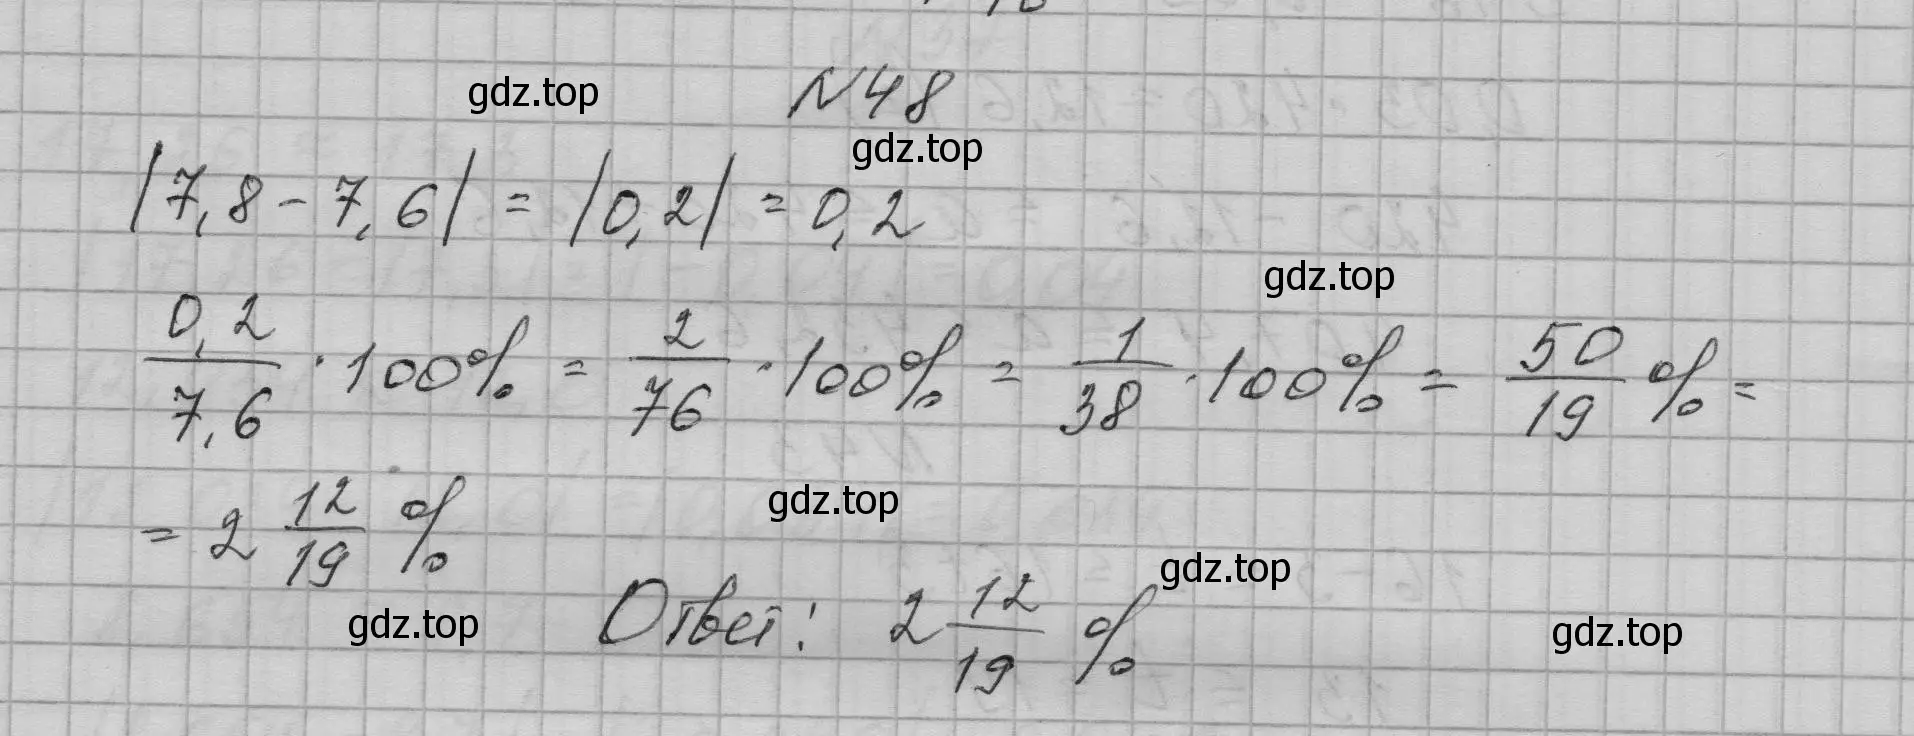 N48
gdz.top
gdz.top
|7,8 - 7,6| = |0,2| = 0,2
gdz.top
0,2/7,6 · 100% = 2/76 · 100% = 1/38 · 100% = 50/19 % =
= 2 12/19 %
gdz.top
gdz.top
Ответ: 2 12/19 %
gdz.top
gdz.top